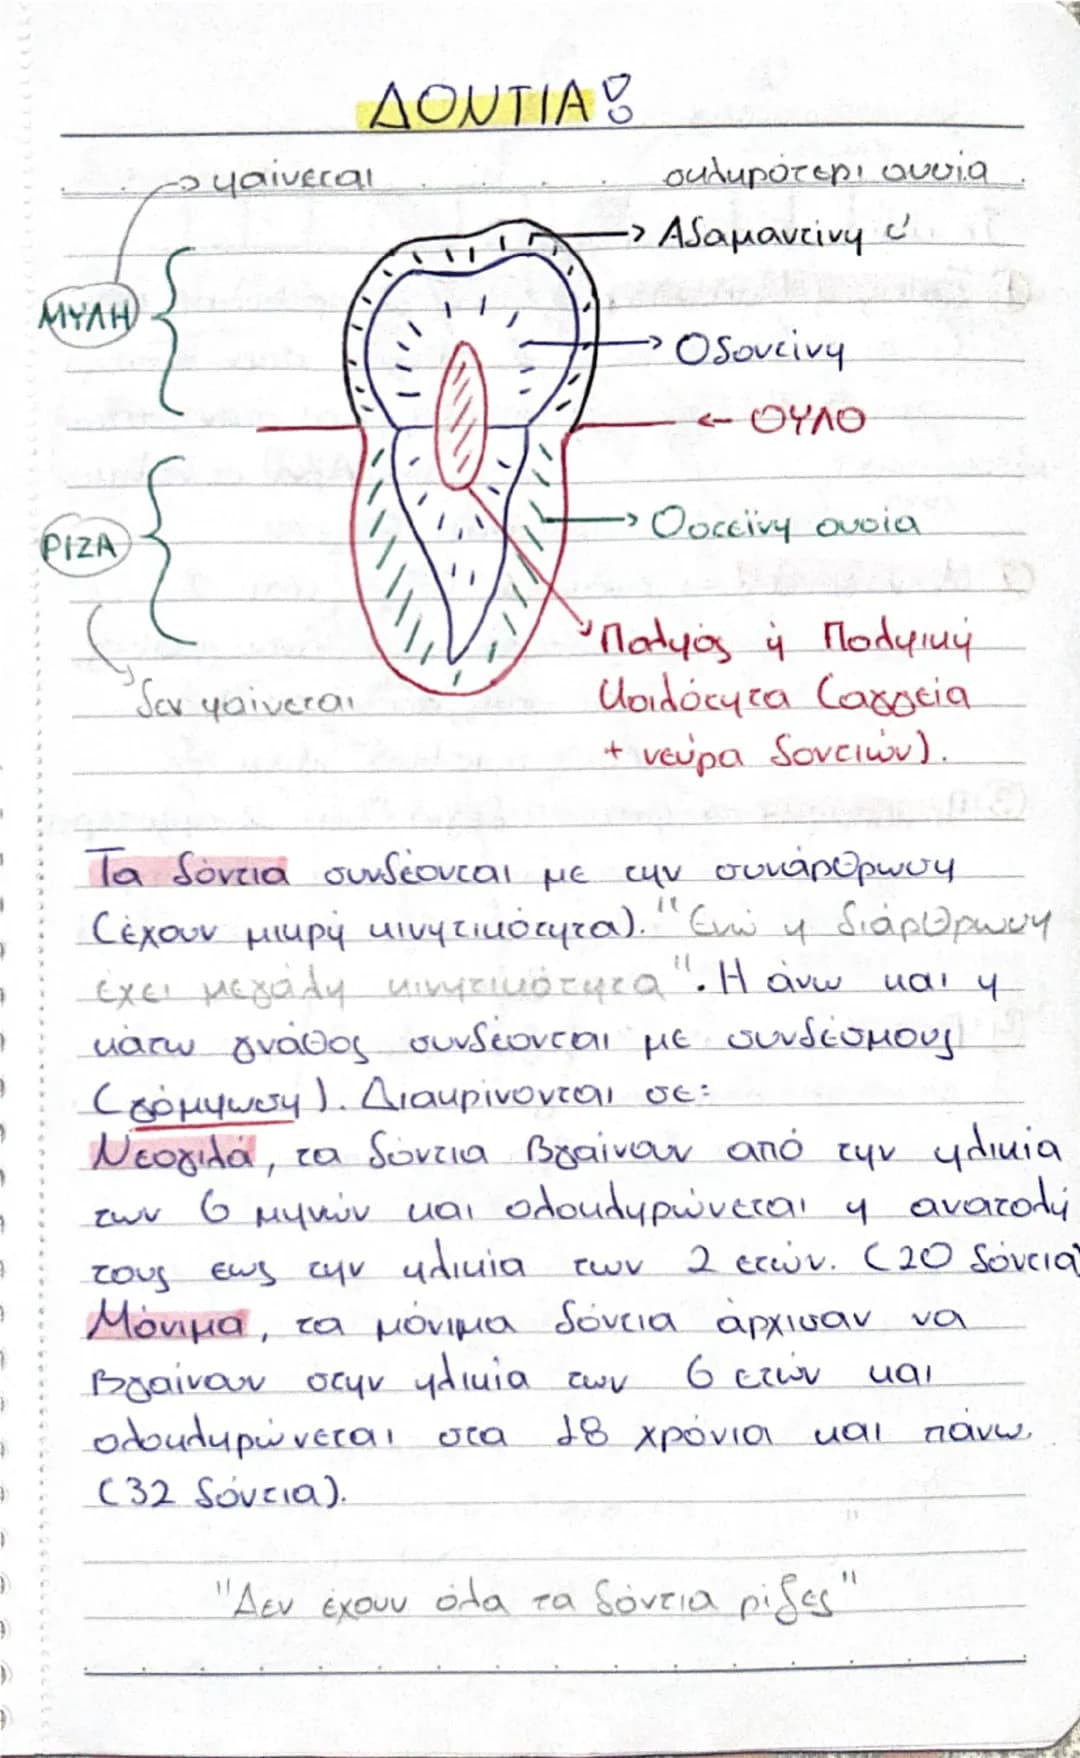 ΔΟΝΤΙΑ!
→ φαίνεται
σκληρότερη ουσία
→ Αδαμαντίνη ή
ΜΥΛΗ
→ Οδοντίνη
← ΟΥΛΟ
ΡΙΖΑ
→ Οστεϊνη ουσία
Πολφός ή Πολφική
κοιλότητα (αγγεία
+ νεύρα δοντιών).
δεν φαίνεται
Τα δόντια συνδέονται με την συνάρθρωση
(έχουν μικρή κινητικότητα). "Ενώ η διάρθρωση
έχει μεγάλη κινητικότητα". Η άνω και η
κάτω γνάθος συνδέονται με συνδέσμους
(γόμφωση). Διακρίνονται σε:
Νεογιλά, τα δόντια Βγαίνουν από την ηλικία
των 6 μηνών και ολοκληρώνεται η ανατολή
τους εως την ηλικία των 2 ετών. (20 δόντια)
Μόνιμα, τα μόνιμα δόντια άρχισαν να
Βγαίνουν στην ηλικία των 6 ετών και
ολοκληρώνεται στα 18 χρόνια και πάνω.
(32 δόντια).
"Δεν έχουν όλα τα δόντια ρίζες"